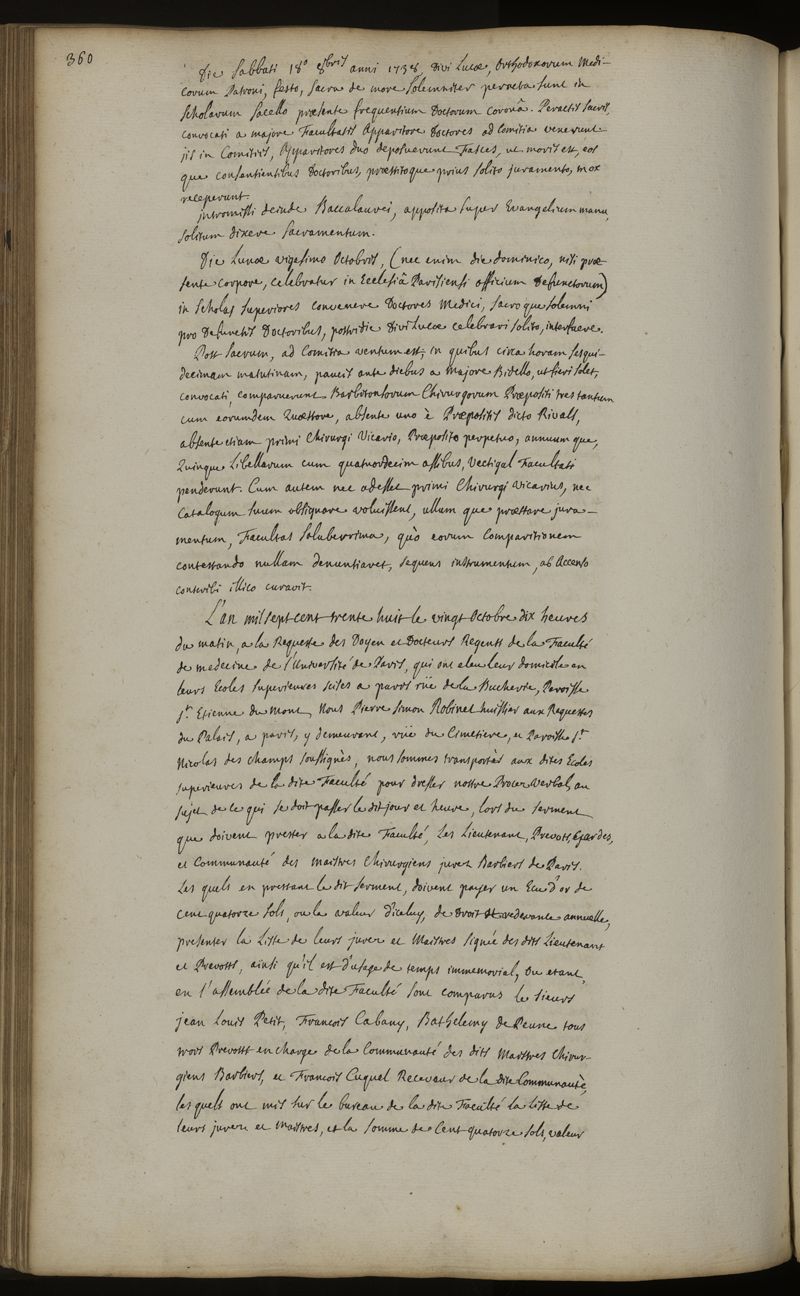 360
Die Sabbati 18° 8bris anni 1738 Divi Lucæ, Orthodoxorum Medi-
corum Patroni, festo, sacra de more solemniter peracta sunt in
Scholarum sacello præsente frequentium Doctorum coronâ. Peractis sacris,
convocati a majore Facultatis Apparitore Doctores ad Comitia venerunt
jis in Comitiis, Apparitores duo deposuerunt Fasces, ut moris est, eos
que consentientibus Doctoribus, præstitoque prius solito juramento, mox
receperunt.
intromissi deinde Baccalaurei, apposita super Evangelium manu,
solitum dixere sacramentum.
Die Lunæ vigesimo Octobris, (nec enim die dominico, nisi præ-
sente corpore, celebratur in Ecclesiâ Parisiensi officium Defunctorum)
in Scholas superiores convenere Doctores Medici, sacroque solemni
pro Defunctis Doctoribus, postridie Divi Lucæ celebrari solito, interfuere.
Post sacrum, ad Comitia ventum est, in quibus circa horam sesqui-
decimam matutinam, paucis ante diebus a majore Bidello, ut fieri solet,
convocati, comparuerunt Barbitonsorum Chirurgorum Præpositi tres tantum
cum eorumdem Quæstore, absente uno è Præpositis dicto Rivals,
absente etiam primi Chirurgi Vicario, Præposito perpetuo, annuum que,
Quinque Libellarum cum quatuordecim assibus, vectigal Facultati
penderunt. Cum autem nec adesset primi Chirurgi vicarius, nec
Catalogum suum obsignare voluissent, ullum que præstare jura-
mentum, Facultas saluberrima, quò eorum Comparitionem
contestando nullam denuntiaret, sequens instrumentum, ab Accenso
conscribi illico curavit.
L'an mil sept cent trente huit le vingt Octobre dix heures
du matin, a la Requeste des Doyen et Docteurs Regents de la Faculté
de medecine de l'Université de Paris, qui ont elu leur domicile en
leurs Ecoles superieures scises a paris rüe de la Bucherie, Paroisse
St. Etienne du Mont, Nous Pierre Simon Robinet huissier aux Requestes
du Palais, a paris, y demeurant, rüe du Cimetiere, et Paroisse St.
Nicolas des champs soussignès, nous sommes transportès aux dites Ecoles
superieures de la dite Faculté pour dresser nostre Procez Verbal, au
sujet de ce qui se doit passer le dit jour et heure, lors du serment
que doivent prester a la dite Faculté, Les Lieutenant, Prevosts, Gardes,
et Communauté des maistres Chirurgiens jurez Barbiers de Paris.
Les quels en prestant le dit serment, doivent payer un Ecu d'or de
cent quatorze sols, ou la valeur d'iceluy, de Droit et redevance annuelle,
presenter la Liste de leurs jurez et Maistres signée des dits Lieutenant
et Prevosts, ainsi qu'il est d'usage de temps immemorial, Ou etant,
en l'assemblée de la dite Faculté sont comparus le sieurs
jean Louis Petit, François Cabany, Bathelemy de Peune tous
trois Prevosts en charge de la Communauté des dits Maistres Chirur-
giens Barbiers, et François Cuquel Receveur de la dite Communauté,
les quels ont mis sur le bureau de la dite Faculté la liste de
leurs jurez et Maistres, et la somme de Cent quatorze sols, valeur